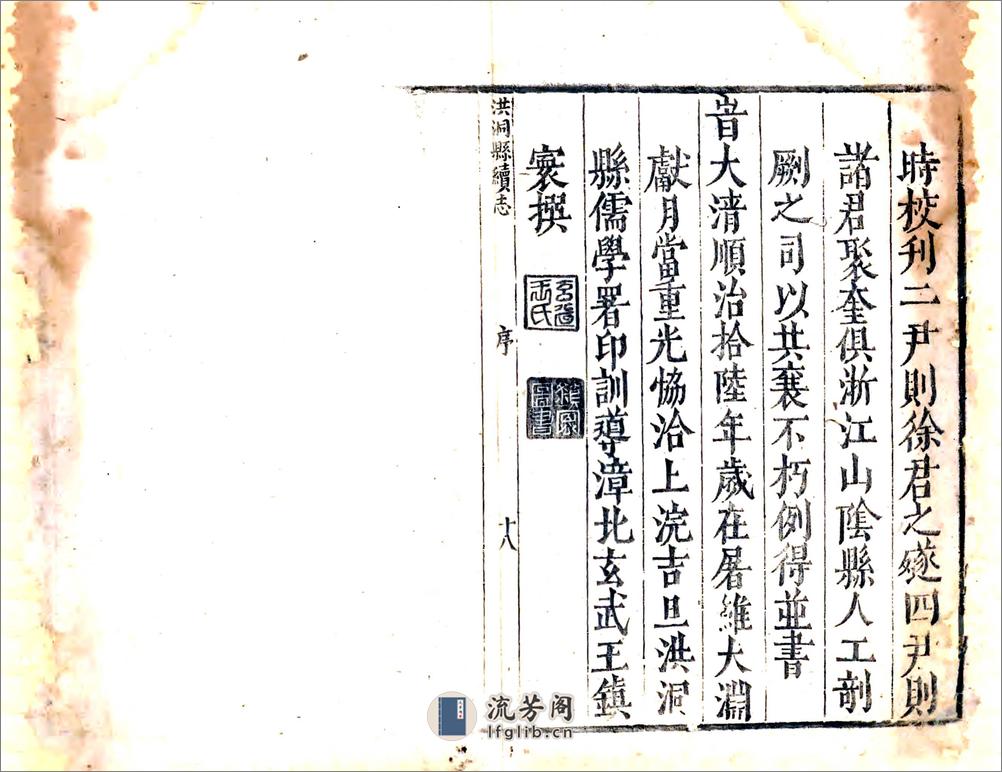 時校刋二尹則徐君之㸂四尹則
諸君聚奎俱浙江山陰縣人工剞
劂之司以共襄不朽例得並書
旹大清順治拾陸年歲在屠維大淵
獻月當重光恊洽上浣吉旦洪洞
縣儒學署印訓導漳北玄武王鎮
寰撰
洪洞縣續志
序
十八
流芳阁
lfglib.cn